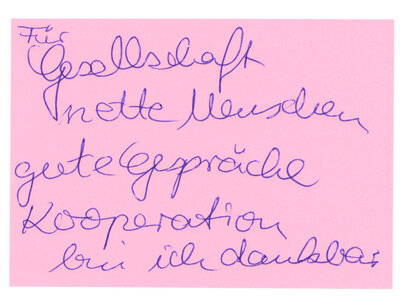 Für
Gesellschaft
nette Menschen
gute Gespräche
Kooperation
bin ich dankbar